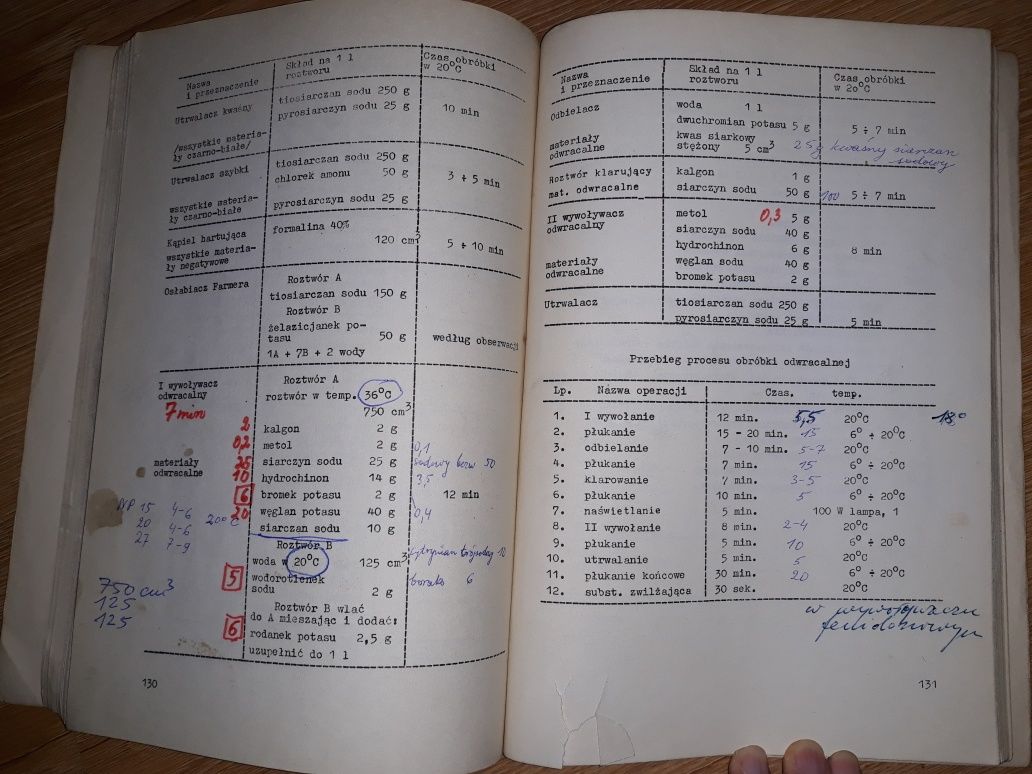 Nazwa i przeznaczenie | Skład na 1 l roztworu | Czas obróbki w 20°C
Utrwalacz kwaśny
/wszystkie materia-
ły czarno-białe/
tiosiarczan sodu 250 g
pyrosiarczyn sodu 25 g
10 min
Utrwalacz szybki
wszystkie materia-
ły czarno-białe
tiosiarczan sodu 250 g
chlorek amonu 50 g
pyrosiarczyn sodu 25 g
3 ÷ 5 min
Kąpiel hartująca
wszystkie materia-
ły negatywowe
formalina 40%
120 cm³
5 ÷ 10 min
Osłabiacz Farmera
Roztwór A
tiosiarczan sodu 150 g
Roztwór B
żelazicjanek po-
tasu 50 g
1A + 7B + 2 wody
według obserwacji
I wywoływacz
odwracalny
7 min
materiały
odwracalne
Roztwór A
roztwór w temp. 36°C
750 cm³
2 kalgon 2 g
0,2 metol 2 g 0,1
25 siarczyn sodu 25 g sodowy bezw. 50
10 hydrochinon 14 g 3,5
6 bromek potasu 2 g 12 min
20 węglan potasu 40 g 0,4
siarczan sodu 10 g
15 4-6
20 4-6 20°C
27 7-9
Roztwór B
woda w 20°C 125 cm³
5 wodorotlenek
sodu 2 g
boraks 6
Roztwór B wlać
do A mieszając i dodać:
6 rodanek potasu 2,5 g
uzupełnić do 1 l
750 cm³
125
125
130
Nazwa i przeznaczenie | Skład na 1 l roztworu | Czas obróbki w 20°C
Odbielacz
materiały
odwracalne
woda 1 l
dwuchromian potasu 5 g
kwas siarkowy
stężony 5 cm³
5 ÷ 7 min
25g kwaśny siarczan
sodowy
Roztwór klarujący
mat. odwracalne
kalgon 1 g
siarczyn sodu 50 g
100 5 ÷ 7 min
II wywoływacz
odwracalny
materiały
odwracalne
metol 0,3 5 g
siarczyn sodu 40 g
hydrochinon 6 g
węglan sodu 40 g
bromek potasu 2 g
8 min
Utrwalacz
tiosiarczan sodu 250 g
pyrosiarczyn sodu 25 g
5 min
Przebieg procesu obróbki odwracalnej
Lp. Nazwa operacji Czas. temp.
1. I wywołanie 12 min. 5,5 20°C 18°
2. płukanie 15 - 20 min. 15 6° ÷ 20°C
3. odbielanie 7 - 10 min. 5-7 20°C
4. płukanie 7 min. 15 6° ÷ 20°C
5. klarowanie 7 min. 3-5 20°C
6. płukanie 10 min. 5 6° ÷ 20°C
7. naświetlanie 5 min. 100 W lampa, 1
8. II wywołanie 8 min. 2-4 20°C
9. płukanie 5 min. 10 6° ÷ 20°C
10. utrwalanie 5 min. 5 20°C
11. płukanie końcowe 30 min. 20 6° ÷ 20°C
12. subst. zwilżająca 30 sek. 20°C
131